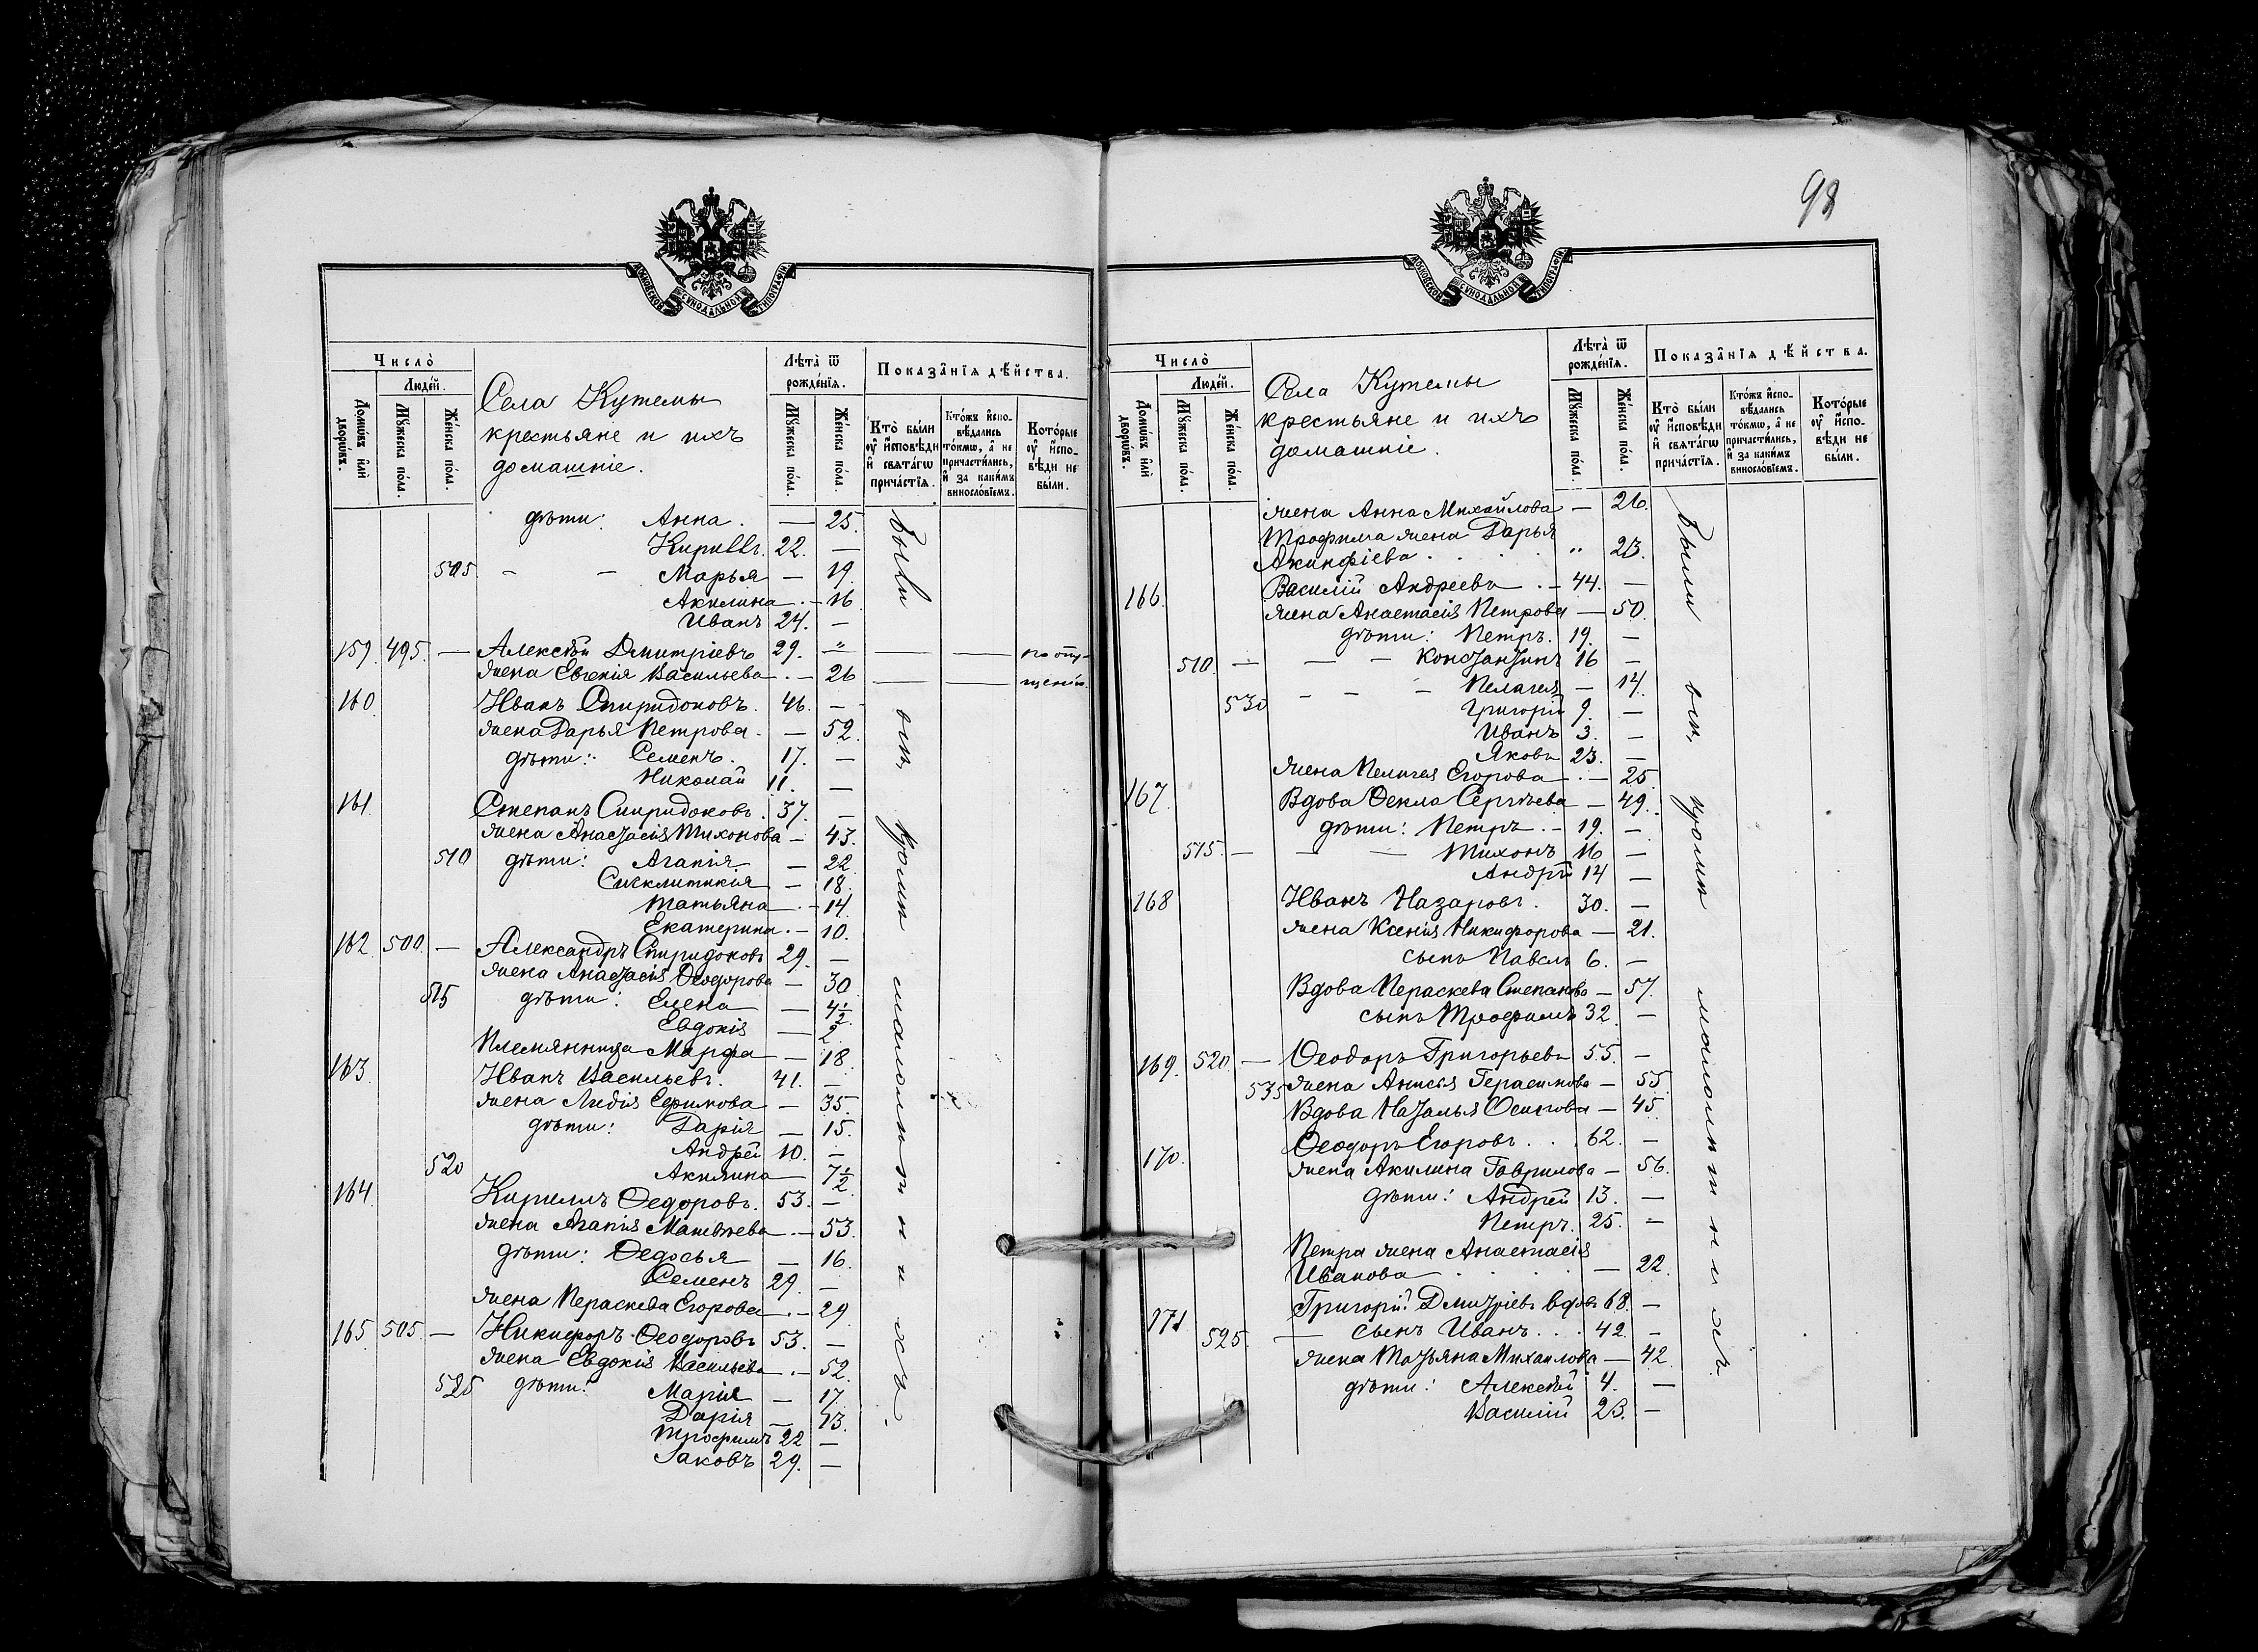 МОСКОВСКОЙ СѴНОДАЛЬНОЙ ТИПОГРАФІИ
Число̀
Люде́й.
Домѡ́въ и҆лѝ дворѡ́въ.
Мꙋ́жеска по́ла.
Же́нска по́ла.
Села Кутемы
крестьяне и ихъ
домашніе.
Лѣта̀ ѿ рожде́нїѧ.
Мꙋ́жеска по́ла.
Же́нска по́ла.
Показа̑нїѧ дѣ́йства.
Кто̀ бы́ли оу҆ и҆сповѣ́ди и҆ свѧта́гѡ прича́стїѧ.
Кто́жъ и҆спо-вѣ́дались то́кмѡ, а҆ не причасти́лись, и҆ за каки́мъ винословїемъ.
Кото́рые оу҆ и҆спо-вѣ́ди не бы́ли.
дѣти: Анна. — 25.
Кириллъ. 22. —
505 - - Марья — 19.
Акилина . - 16
Иванъ 24. —
159. 495. — Алексѣй Дмитріевъ 29. -"- — — по опу-
жена Евгенія Васильева . - 26 — — щенію.
160 Иванъ Спиридоновъ. 46. —
жена Дарья Петрова. — 52.
дѣти: Семенъ. 17. —
Николай 11. —
161 Степанъ Спиридоновъ. 37. —
жена Анастасія Тихонова — 43.
510 дѣти: Агапія — 22
Сигклитикія — 18.
Татьяна . - 14.
Екатерина . - 10.
162 500. — Александръ Спиридоновъ 29. —
жена Анастасія Ѳеодорова — 30
515 дѣти: Елена — 4½.
Евдокія — 2.
Племянница Марѳа — 18.
163. Иванъ Васильевъ. 41. —
жена Лидія Ефимова — 35.
дѣти: Дарія — 15.
Андрей 10. —
520 Акилина 7½
164 Кириллъ Ѳедоровъ. 53. —
жена Агапія Матвѣева . — 53.
дѣти: Ѳедосья — 16.
Семенъ 29. —
жена Параскева Егорова . - 29
165 505. — Никифоръ Ѳеодоровъ 53. —
жена Евдокія Васильева . - 52.
525 дѣти: Марія — 17.
Дарія — 13.
Трофимъ 22 —
Іаковъ 29. —
Были всѣ, кромѣ малолѣтнихъ.
98
МОСКОВСКОЙ СѴНОДАЛЬНОЙ ТИПОГРАФІИ
Число̀
Люде́й.
Домѡ́въ и҆лѝ дворѡ́въ.
Мꙋ́жеска по́ла.
Же́нска по́ла.
Села Кутемы
крестьяне и ихъ
домашніе.
Лѣта̀ ѿ рожде́нїѧ.
Мꙋ́жеска по́ла.
Же́нска по́ла.
Показа̑нїѧ дѣ́йства.
Кто̀ бы́ли оу҆ и҆сповѣ́ди и҆ свѧта́гѡ прича́стїѧ.
Кто́жъ и҆спо-вѣ́дались то́кмѡ, а҆ не причасти́лись, и҆ за каки́мъ винословїемъ.
Кото́рые оу҆ и҆спо-вѣ́ди не бы́ли.
жена Анна Михайлова — 26.
Трофима жена Дарья
Акинфіева . . . . " 23.
166. Василій Андреевъ . - 44. —
жена Анастасія Петрова — 50.
дѣти: Петръ. 19. —
510. — — - Константинъ 16 —
- - - Пелагея — 14.
530 Григорій 9. —
Иванъ 3. —
Яковъ 23. —
жена Пелагея Егорова . - 25
167. Вдова Ѳекла Сергѣева — 49.
дѣти: Петръ . - 19. —
515. — — — Тихонъ 16 —
Андрей 14 —
168 Иванъ Назаровъ. 30. —
жена Ксенія Никифорова — 21.
сынъ Павелъ 6. —
Вдова Пераскева Степанова — 57.
сынъ Трофимъ 32. —
169. 520. — Ѳеодоръ Григорьевъ 55. —
535 жена Анисья Герасимова — 55.
Вдова Наталья Осипова — 45.
170. Ѳеодоръ Егоровъ . . . 62. —
жена Акилина Гаврилова — 56.
дѣти: Андрей 13. —
Петръ. 25. —
Петра жена Анастасія
Иванова . . . . — 22.
171 Григорій Дмитріевъ вдов 68. —
525. — сынъ Иванъ . . . 42. —
жена Татьяна Михаилова — 42.
дѣти: Алексѣй 4. —
Василій 23. —
Были всѣ, кромѣ малолѣтнихъ.